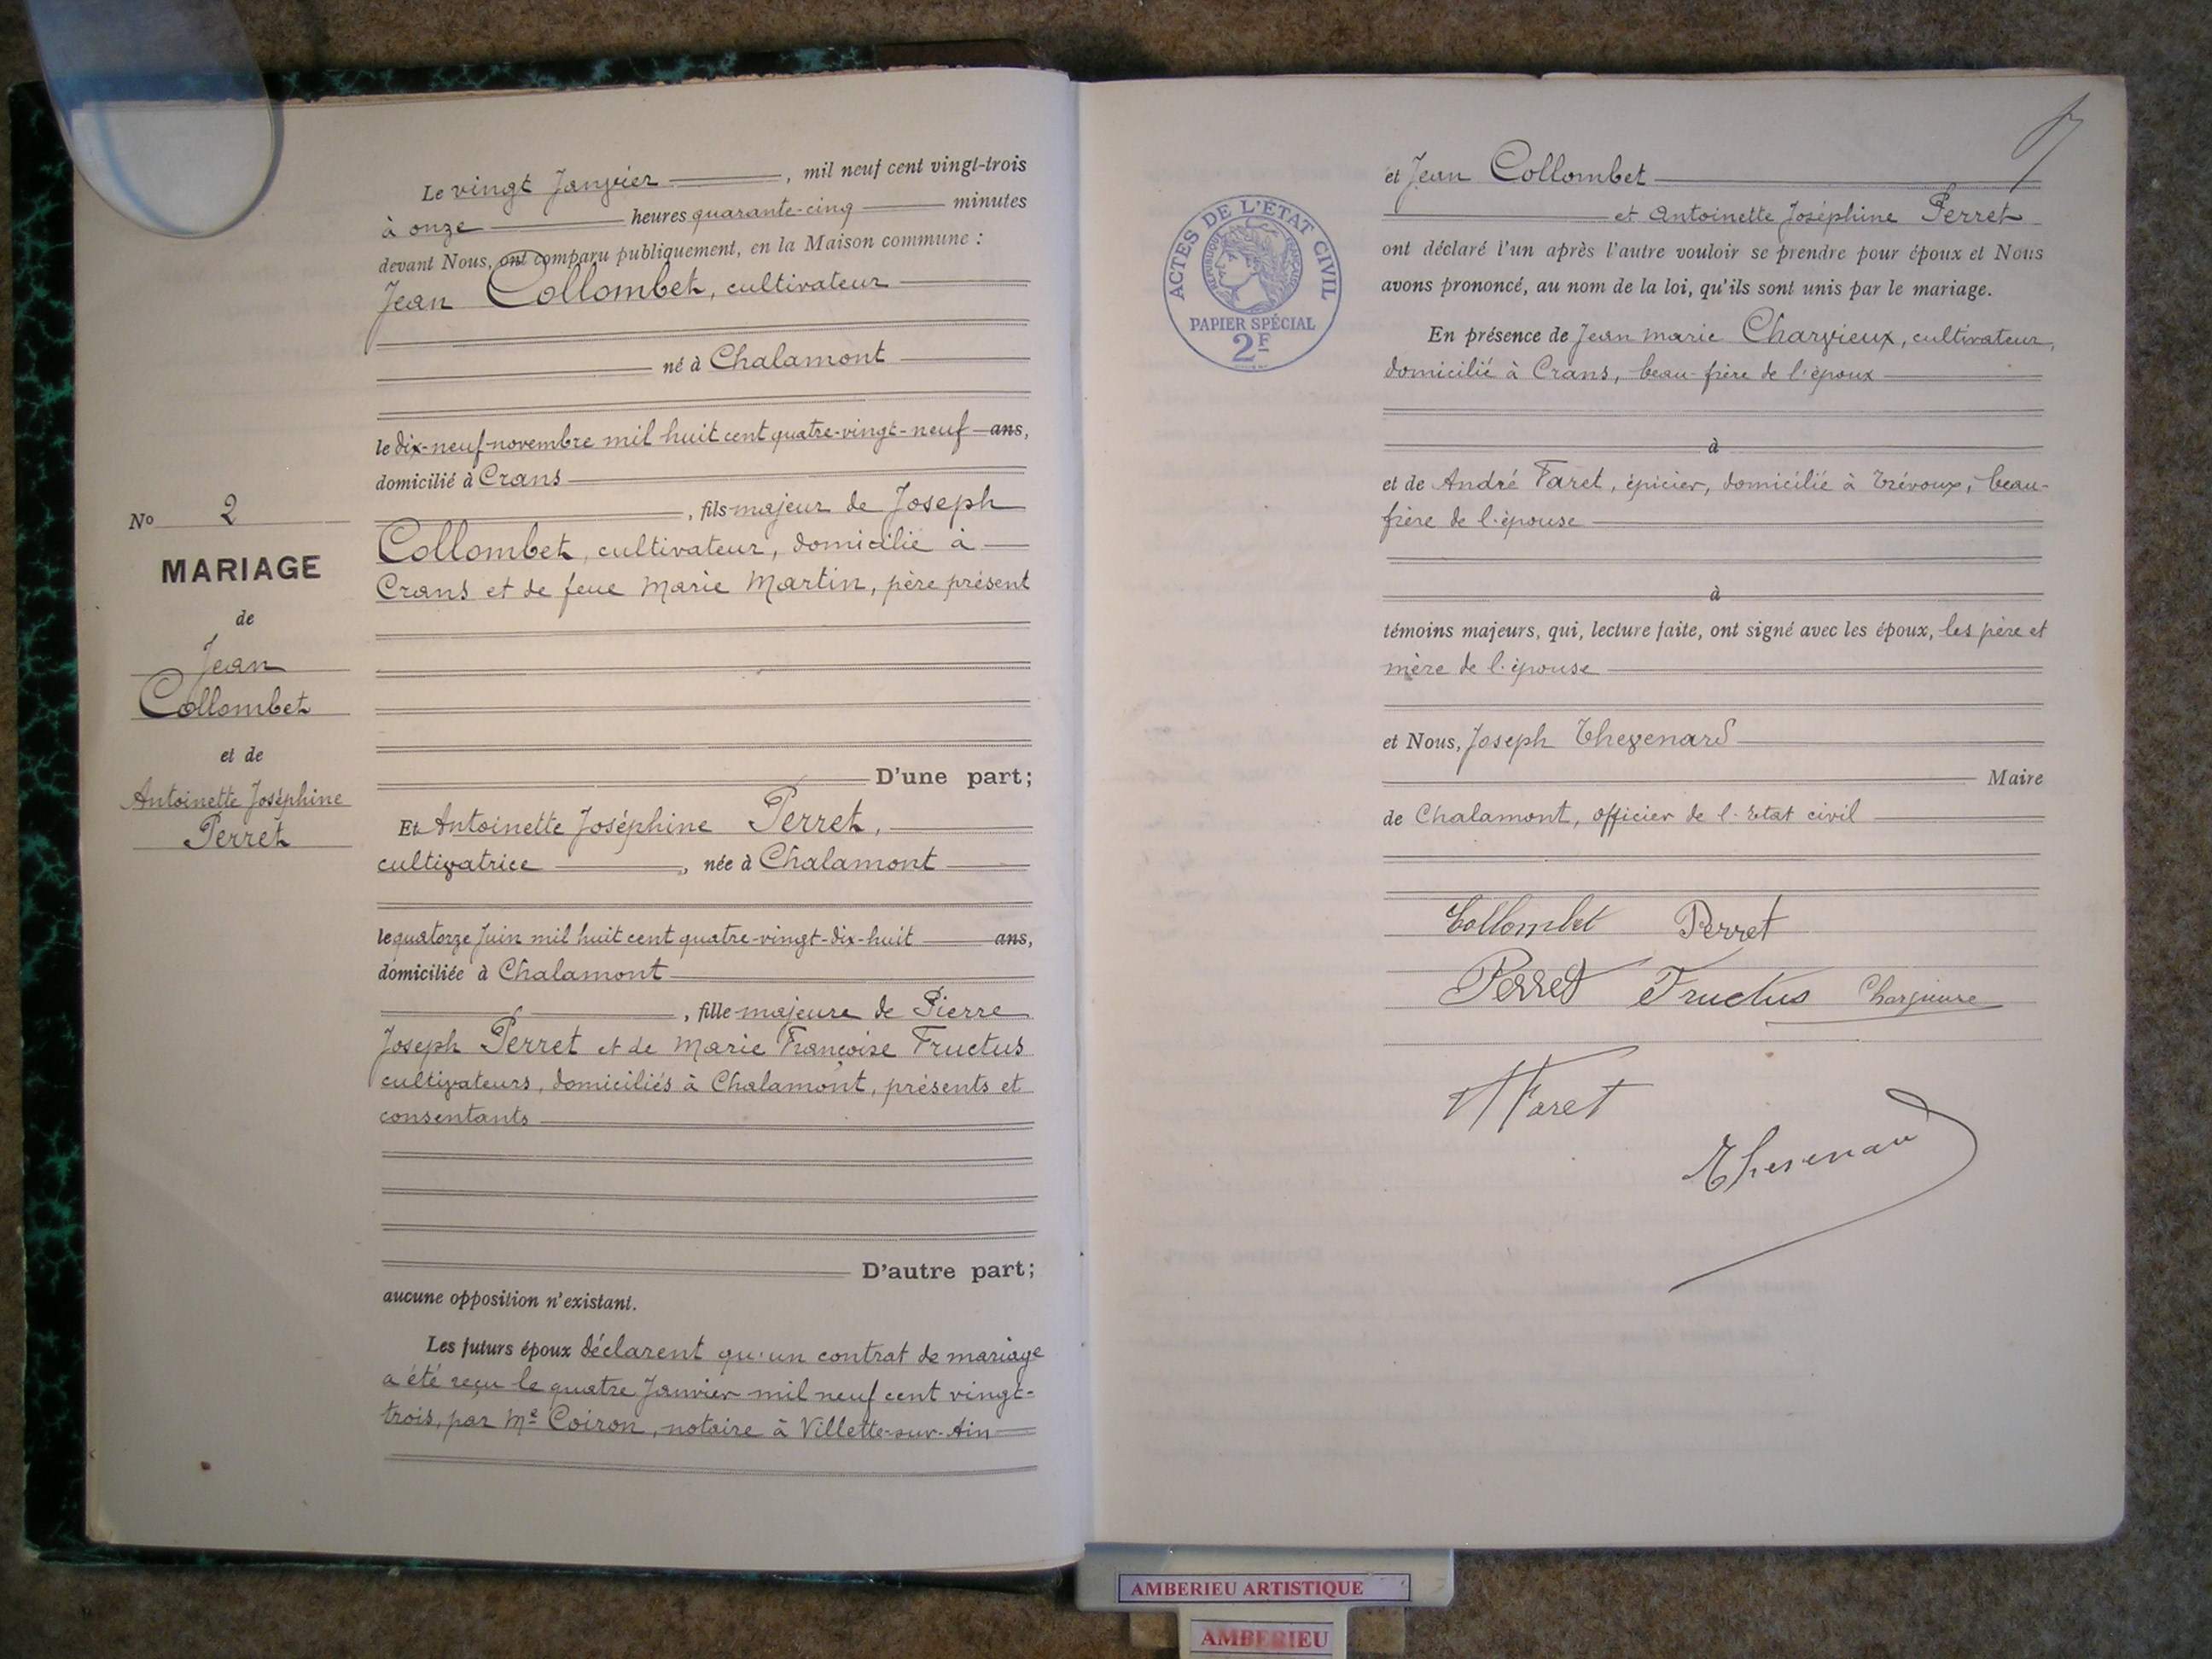 Le vingt Janvier, mil neuf cent vingt-trois
à onze heures quarante-cinq minutes
devant Nous, ont comparu publiquement, en la Maison commune :
Jean Collombet, cultivateur
né à Chalamont
le dix-neuf novembre mil huit cent quatre-vingt-neuf ans,
domicilié à Crans
, fils majeur de Joseph
Collombet, cultivateur, domicilié à
Crans et de feue Marie Martin, père présent
D'une part;
Et Antoinette Joséphine Perret,
cultivatrice, née à Chalamont
le quatorze Juin mil huit cent quatre-vingt-dix-huit ans,
domiciliée à Chalamont
, fille majeure de Pierre
Joseph Perret et de Marie Françoise Fructus
cultivateurs, domiciliés à Chalamont, présents et
consentants
D'autre part;
aucune opposition n'existant.
Les futurs époux déclarent qu'un contrat de mariage
a été reçu le quatre Janvier mil neuf cent vingt-
trois, par Me Coiron, notaire à Villette-sur-Ain
No 2
MARIAGE
de
Jean
Collombet
et de
Antoinette Joséphine
Perret
ACTES DE L'ÉTAT CIVIL
RÉPUBLIQUE FRANÇAISE
PAPIER SPÉCIAL
2F
et Jean Collombet
et Antoinette Joséphine Perret
ont déclaré l'un après l'autre vouloir se prendre pour époux et Nous
avons prononcé, au nom de la loi, qu'ils sont unis par le mariage.
En présence de Jean Marie Charvieux, cultivateur,
domicilié à Crans, beau-frère de l'époux
à
et de André Faret, épicier, domicilié à Trévoux, beau-
frère de l'épouse
à
témoins majeurs, qui, lecture faite, ont signé avec les époux, les père et
mère de l'épouse
et Nous, Joseph Thevenard
Maire
de Chalamont, officier de l'Etat civil
Collombet Perret
Perret Fructus
Faret
Thevenard
AMBERIEU ARTISTIQUE
AMBERIEU